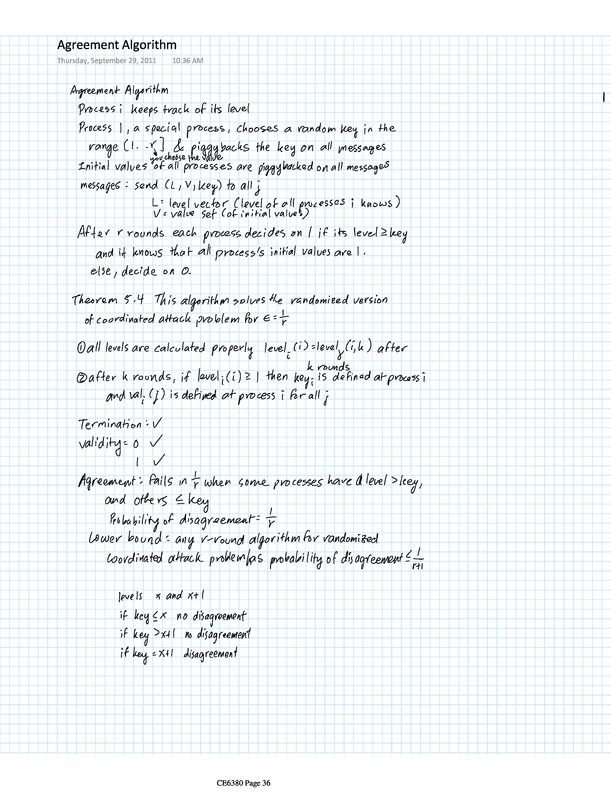 Agreement Algorithm
Thursday, September 29, 2011 10:36 AM
Agreement Algorithm
Process i keeps track of its level
Process 1, a special process, chooses a random key in the
range [1...r] & piggybacks the key on all messages
you choose the value
Initial values of all processes are piggybacked on all messages
messages: send (L, V, key) to all j
L = level vector (level of all processes i knows)
V = value set (of initial values)
After r rounds each process decides on 1 if its level ≥ key
and it knows that all process's initial values are 1.
else, decide on 0.
Theorem 5.4 This algorithm solves the randomized version
of coordinated attack problem for ε = 1/r
① all levels are calculated properly level_i(i) = level_γ(i,k) after
k rounds
② after k rounds, if level_i(i) ≥ 1 then key_i is defined at process i
and val_i(j) is defined at process i for all j
Termination: ✓
validity = 0 ✓
1 ✓
Agreement: fails in 1/r when some processes have a level > key,
and others ≤ key
Probability of disagreement = 1/r
Lower bound = any r-round algorithm for randomized
coordinated attack problem has probability of disagreement ≤ 1/r+1
levels x and x+1
if key ≤ x no disagreement
if key > x+1 no disagreement
if key = x+1 disagreement
CE6380 Page 36